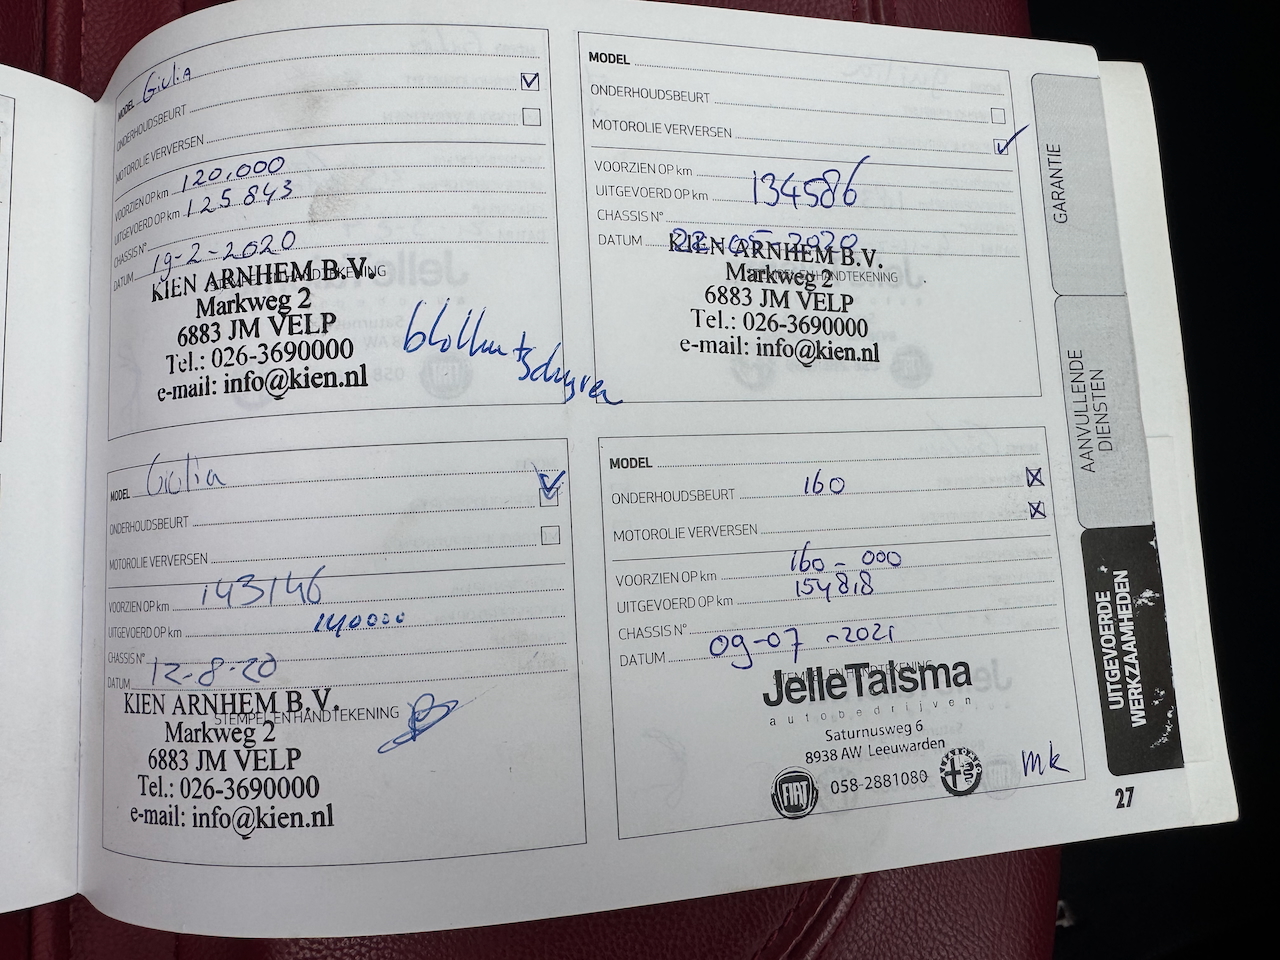 MODEL Giulia
ONDERHOUDSBEURT
MOTOROLIE VERVERSEN
VOORZIEN OP km 120.000
UITGEVOERD OP km 125843
CHASSIS N°
DATUM 19-2-2020
STEMPEL EN HANDTEKENING
KIEN ARNHEM B.V.
Markweg 2
6883 JM VELP
Tel.: 026-3690000
e-mail: info@kien.nl
MODEL
ONDERHOUDSBEURT
MOTOROLIE VERVERSEN
VOORZIEN OP km
UITGEVOERD OP km 134586
CHASSIS N°
DATUM 22-05-2020
STEMPEL EN HANDTEKENING
KIEN ARNHEM B.V.
Markweg 2
6883 JM VELP
Tel.: 026-3690000
e-mail: info@kien.nl
MODEL Giulia
ONDERHOUDSBEURT
MOTOROLIE VERVERSEN
VOORZIEN OP km 143146
UITGEVOERD OP km 140000
CHASSIS N°
DATUM 12-8-20
STEMPEL EN HANDTEKENING
KIEN ARNHEM B.V.
Markweg 2
6883 JM VELP
Tel.: 026-3690000
e-mail: info@kien.nl
MODEL
ONDERHOUDSBEURT 160
MOTOROLIE VERVERSEN
VOORZIEN OP km 160-000
UITGEVOERD OP km 154818
CHASSIS N°
DATUM 09-07-2021
STEMPEL EN HANDTEKENING
Jelle Talsma
autobedrijven
Saturnusweg 6
8938 AW Leeuwarden
058-2881080
FIAT
mk
GARANTIE
AANVULLENDE
DIENSTEN
UITGEVOERDE
WERKZAAMHEDEN
27